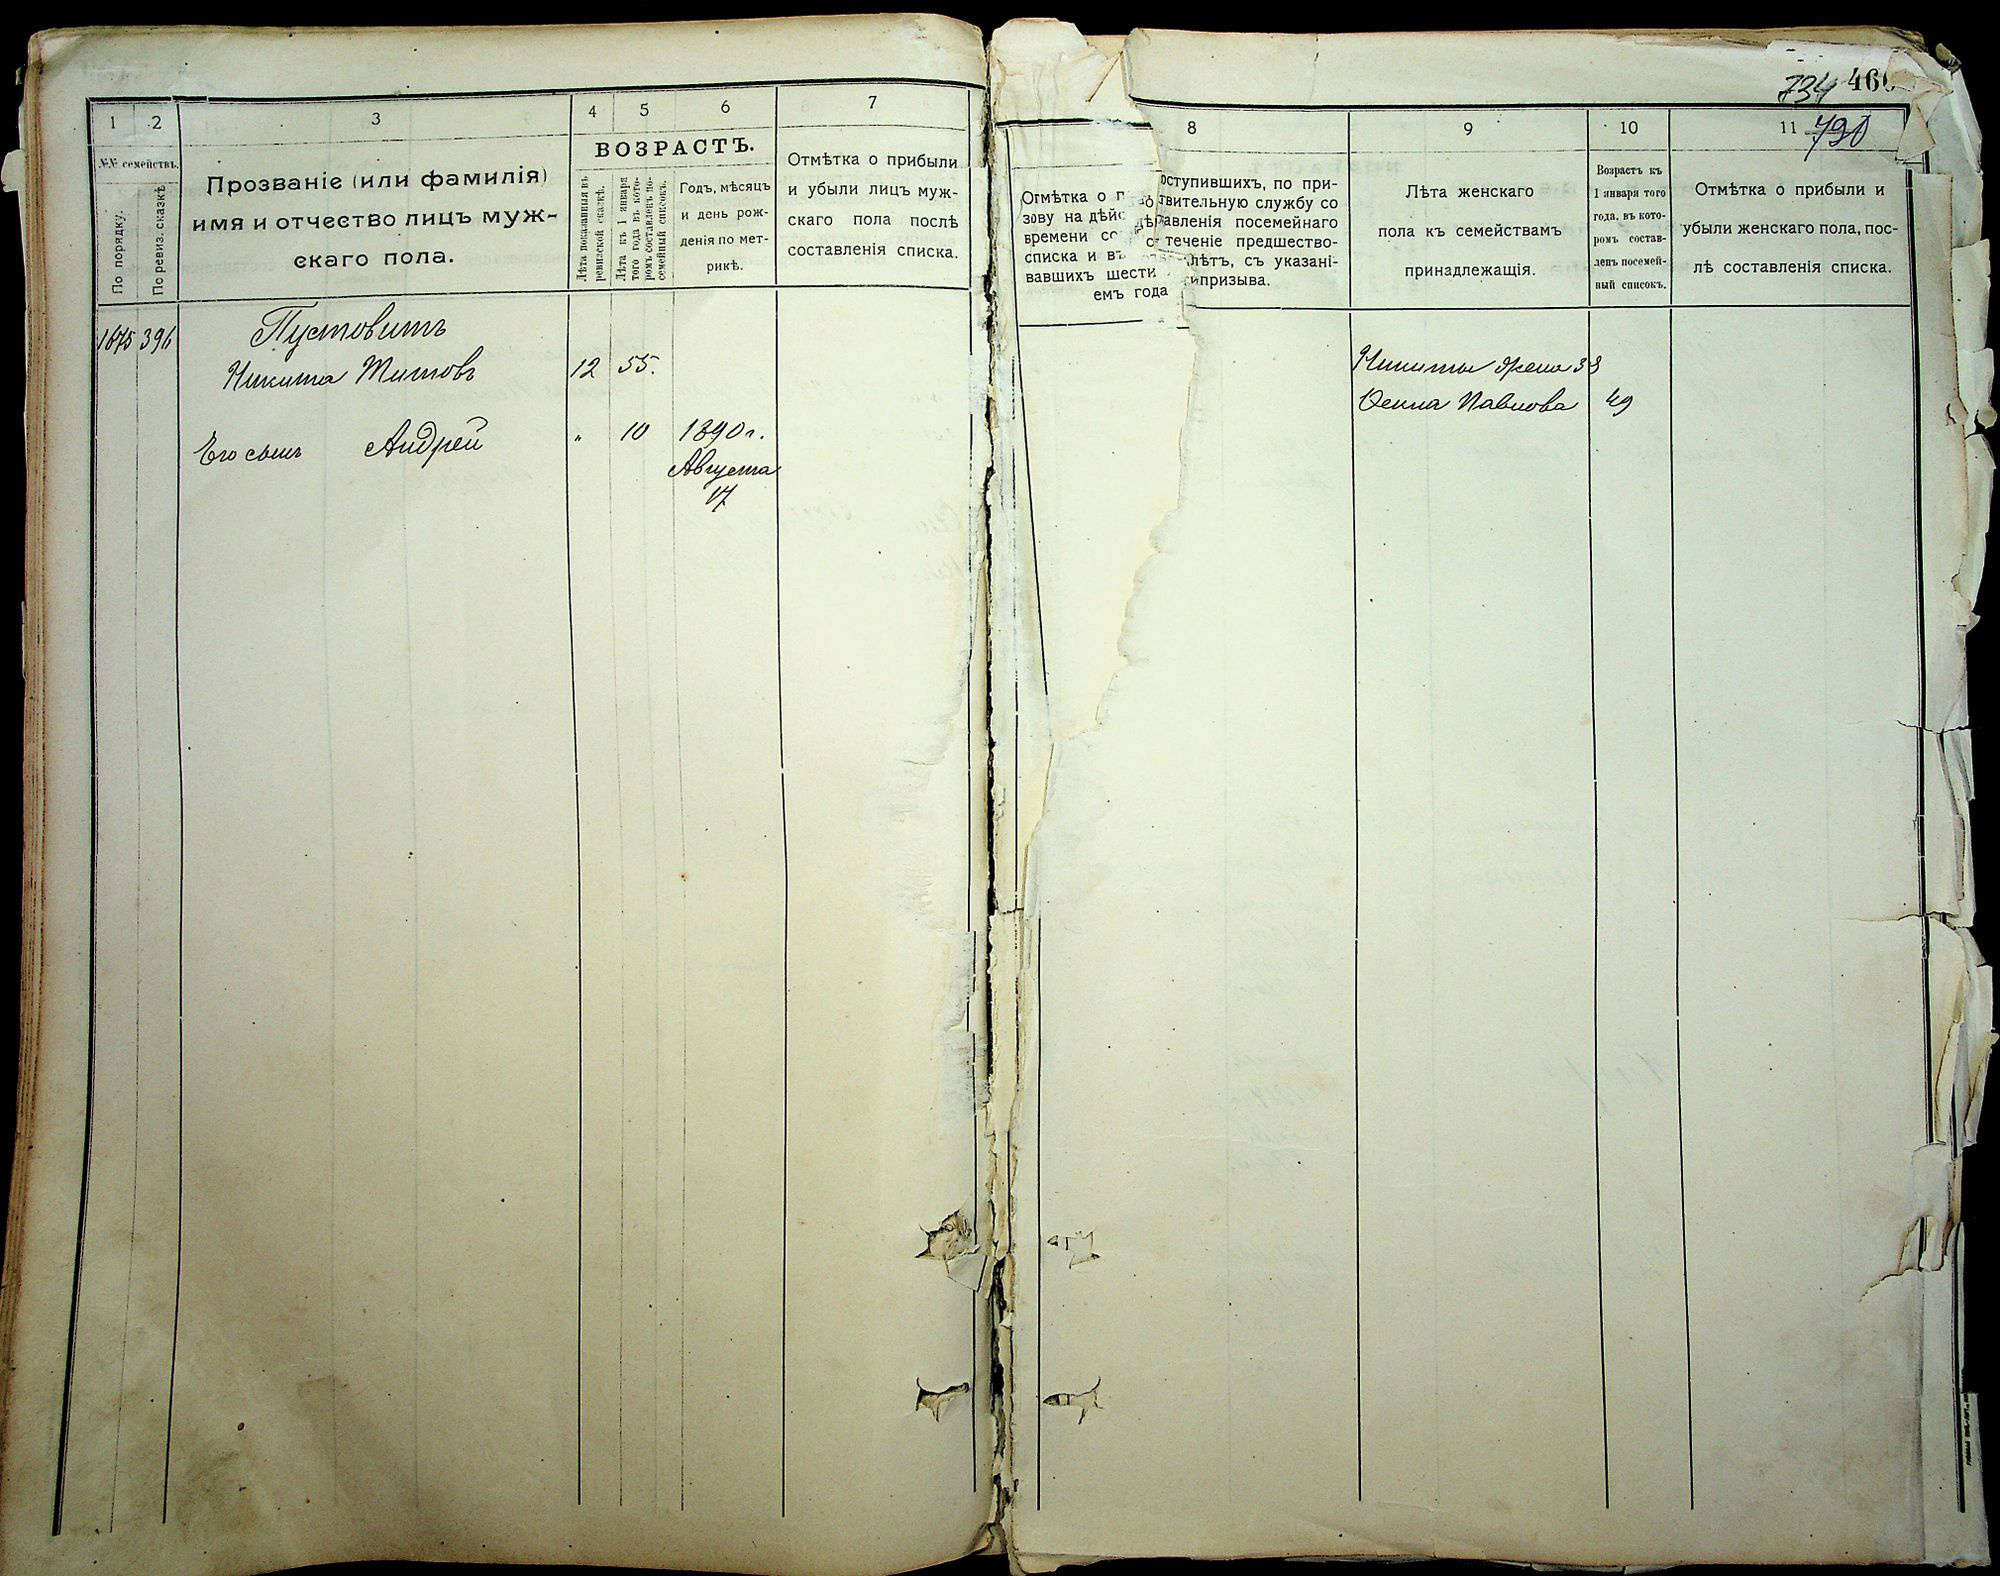 734 460
790
1 2 3 4 5 6 7
№№ семействъ.
По порядку.
По ревиз. сказкѣ
Прозваніе (или фамилія)
имя и отчество лицъ муж-
скаго пола.
ВОЗРАСТЪ.
Лѣта показанныя въ
ревизской сказкѣ.
Лѣта къ 1 января
того года въ кото-
ромъ составленъ по-
семейный списокъ.
Годъ, мѣсяцъ
и день рож-
денія по мет-
рикѣ.
Отмѣтка о прибыли
и убыли лицъ муж-
скаго пола послѣ
составленія списка.
1875 396 Пустовитъ
Никита Титовъ 12 55.
Его сынъ Андрей „ 10 1890 г.
Августа
17
8 9 10 11
Отмѣтка о поступившихъ, по при-
зову на дѣйствительную службу со
времени составленія посемейнаго
списка и въ теченіе предшество-
вавшихъ шести лѣтъ, съ указані-
емъ года призыва.
Лѣта женскаго
пола къ семействамъ
принадлежащія.
Возрастъ къ
1 января того
года, въ кото-
ромъ состав-
ленъ посемей-
ный списокъ.
Отмѣтка о прибыли и
убыли женскаго пола, пос-
лѣ составленія списка.
Никиты жена
Фекла Павлова 49